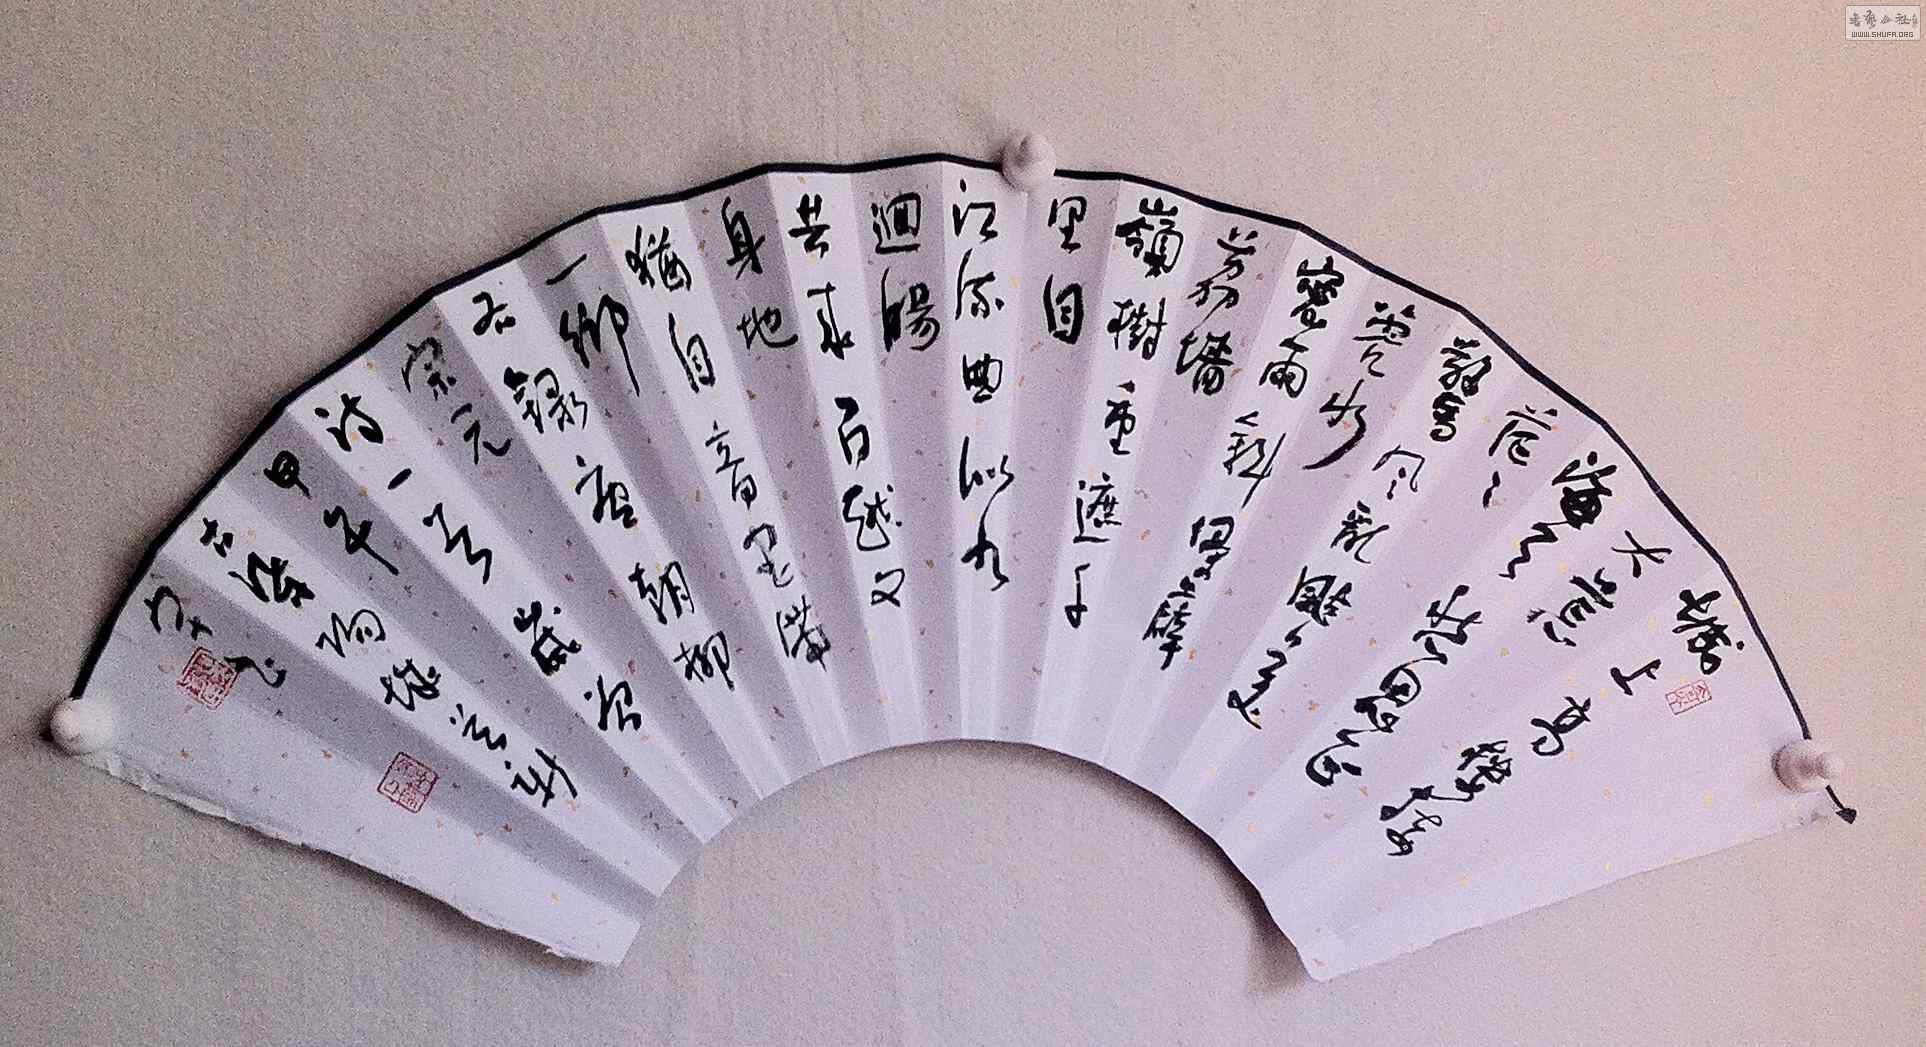 城上高樓接
大荒
海天愁思正
茫々
驚風亂颭芙
蓉水
密雨斜侵薜
荔墻
嶺樹重遮千
里目
江流曲似九
迴腸
共来百越文
身地
猶自音書滯
一鄉
右錄唐朝柳
宗元
诗一首歲次
甲午
WWW.SHUFA.ORG